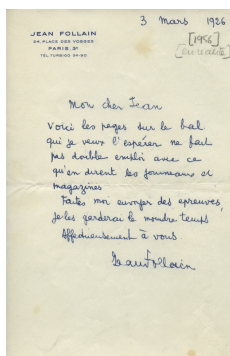 3 mars 1926
[1956]
[en réalité]
JEAN FOLLAIN
24, PLACE DES VOSGES
PARIS. 3e
TEL TURBIGO 34-90
Mon cher Jean
Voici les pages sur le bal
qui je veux l'espérer ne fait
pas double emploi avec ce
qu'en dirent les journeaux et
magazines
Faites moi envoyer des épreuves,
je les garderai le moindre temps
Affectueusement à vous
Jean Follain